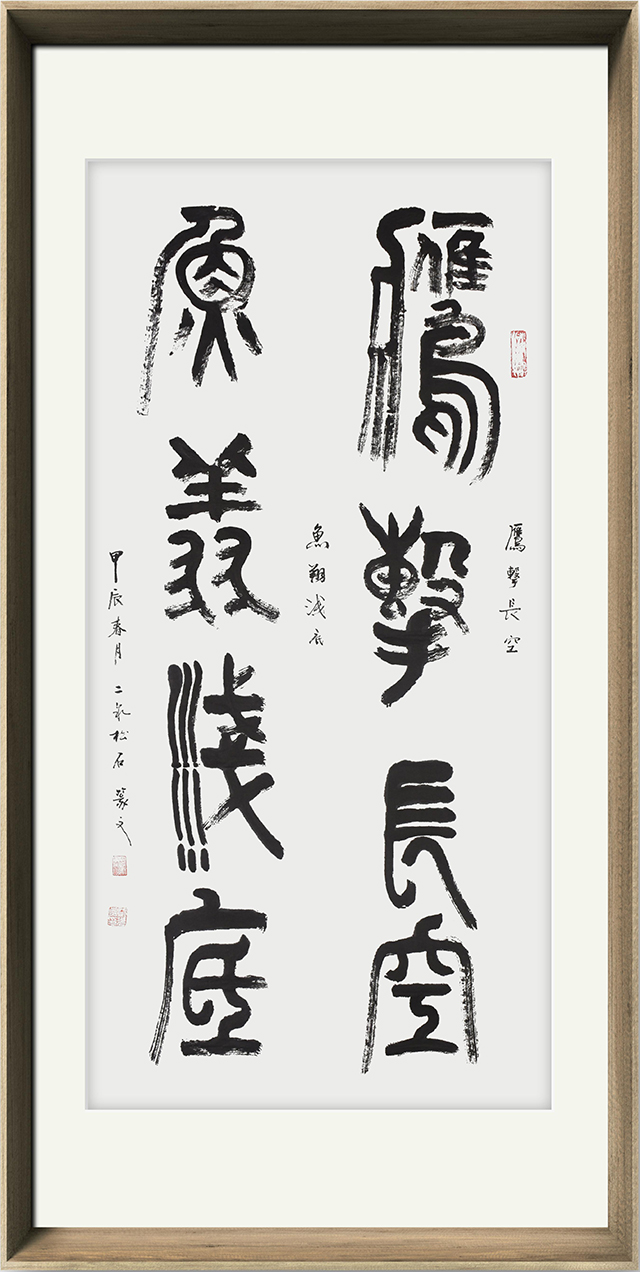 鷹擊長空
鷹擊長空
魚翔淺底
魚翔浅底
甲辰春月二氣松石篆文